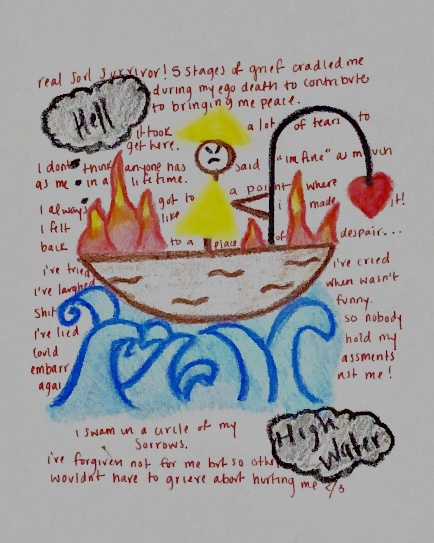 real soil survivor! 5 stages of grief cradled me
during my ego death to contribute
to bringing me peace.
Hell
it took a lot of tears to
get here.
I dont think anyone has said "im fine" as much
as me in a lifetime. a point where
I always got to i made it!
I felt like
back to a place of despair...
i've tried i've cried
i've laughed when wasn't
Shit funny.
i've lied so nobody
could hold my
embarr assments
agai nst me!
i swam in a circle of my
sorrows.
High
Water
i've forgiven not for me but so othe
wouldnt have to grieve about hurting me